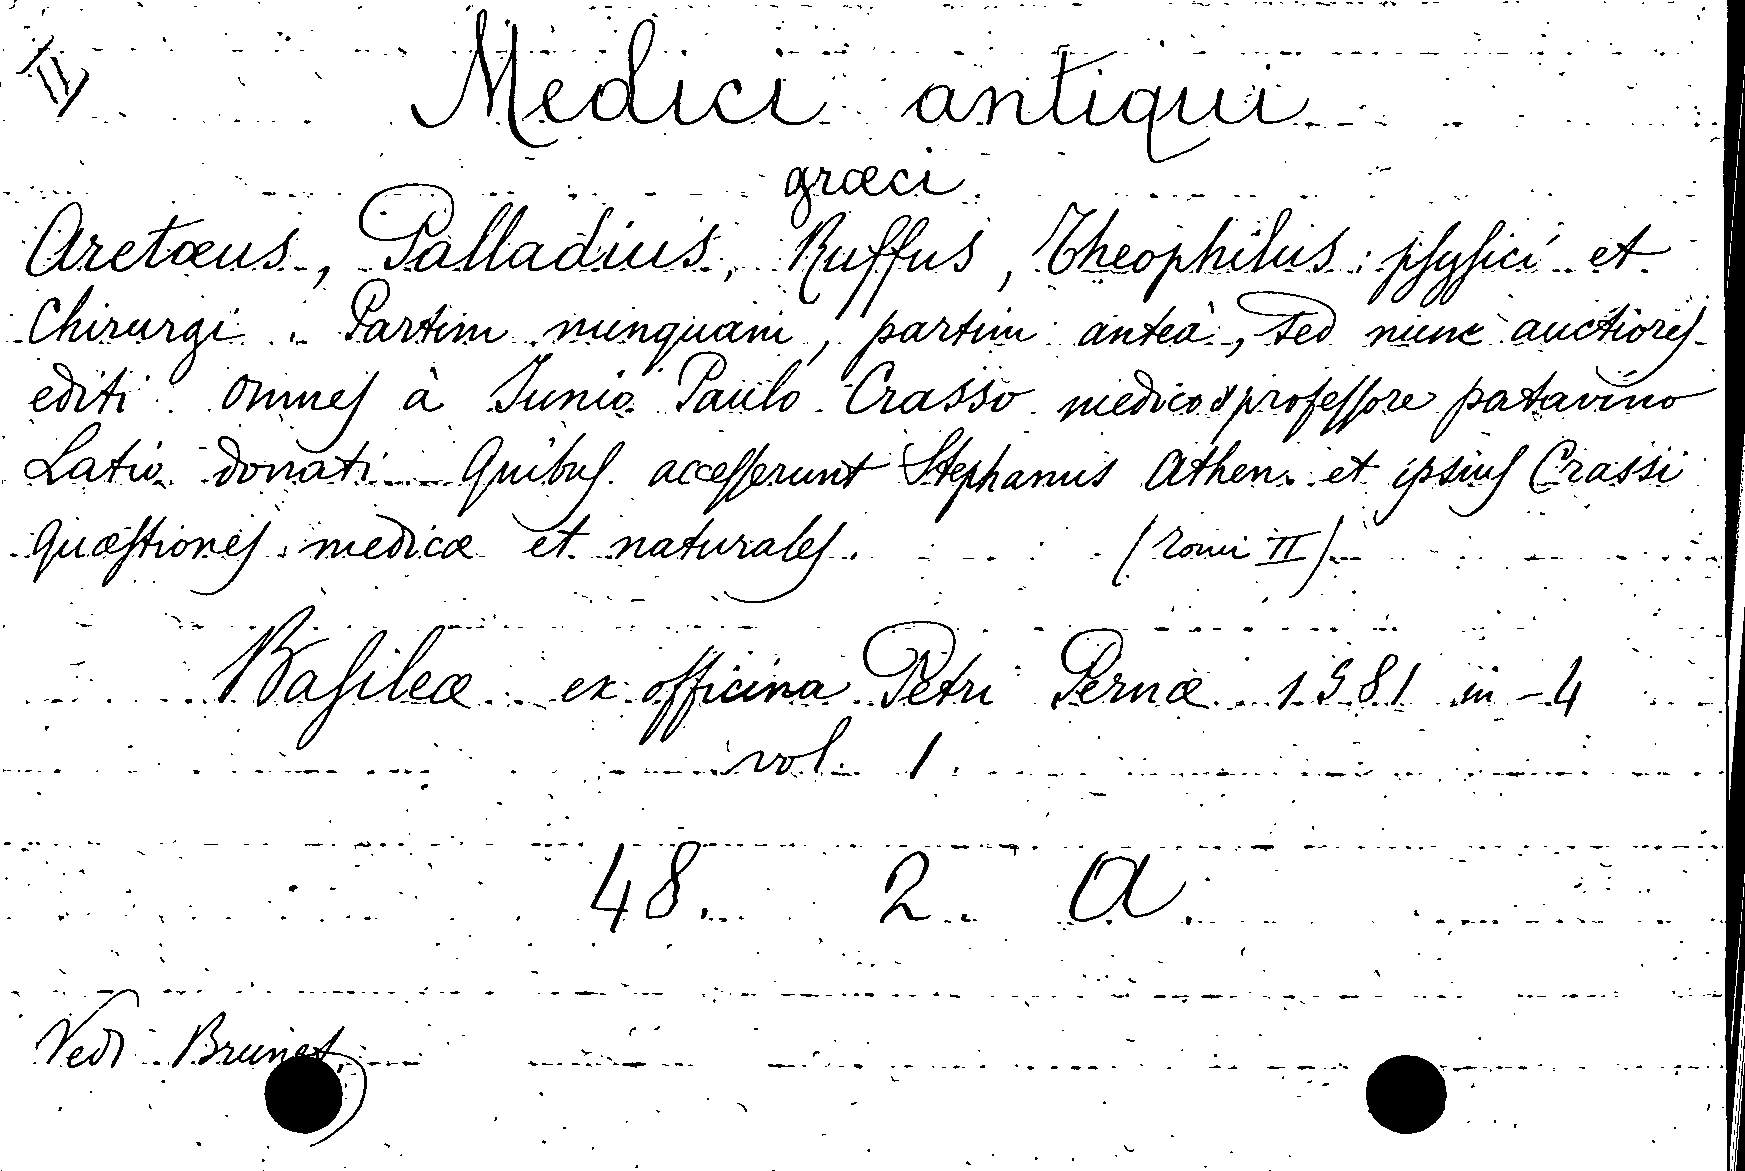 II
Medici antiqui
græci
Aretæus, Palladius, Ruffus, Theophilus: physici et
Chirurgi. Partim nunquam, partim anteà, sed nunc auctiores
editi omnes à Iunio Paulo Crasso medico & professore patavino
Latio donati Quibus accesserunt Stephanus Athen. et ipsius Crassi
Quæstiones medicæ et naturales. (Tomi II)
Basileæ ex officina Petri Pernæ 1581 in-4
vol. 1
48. 2. A.
Vedi Brunet